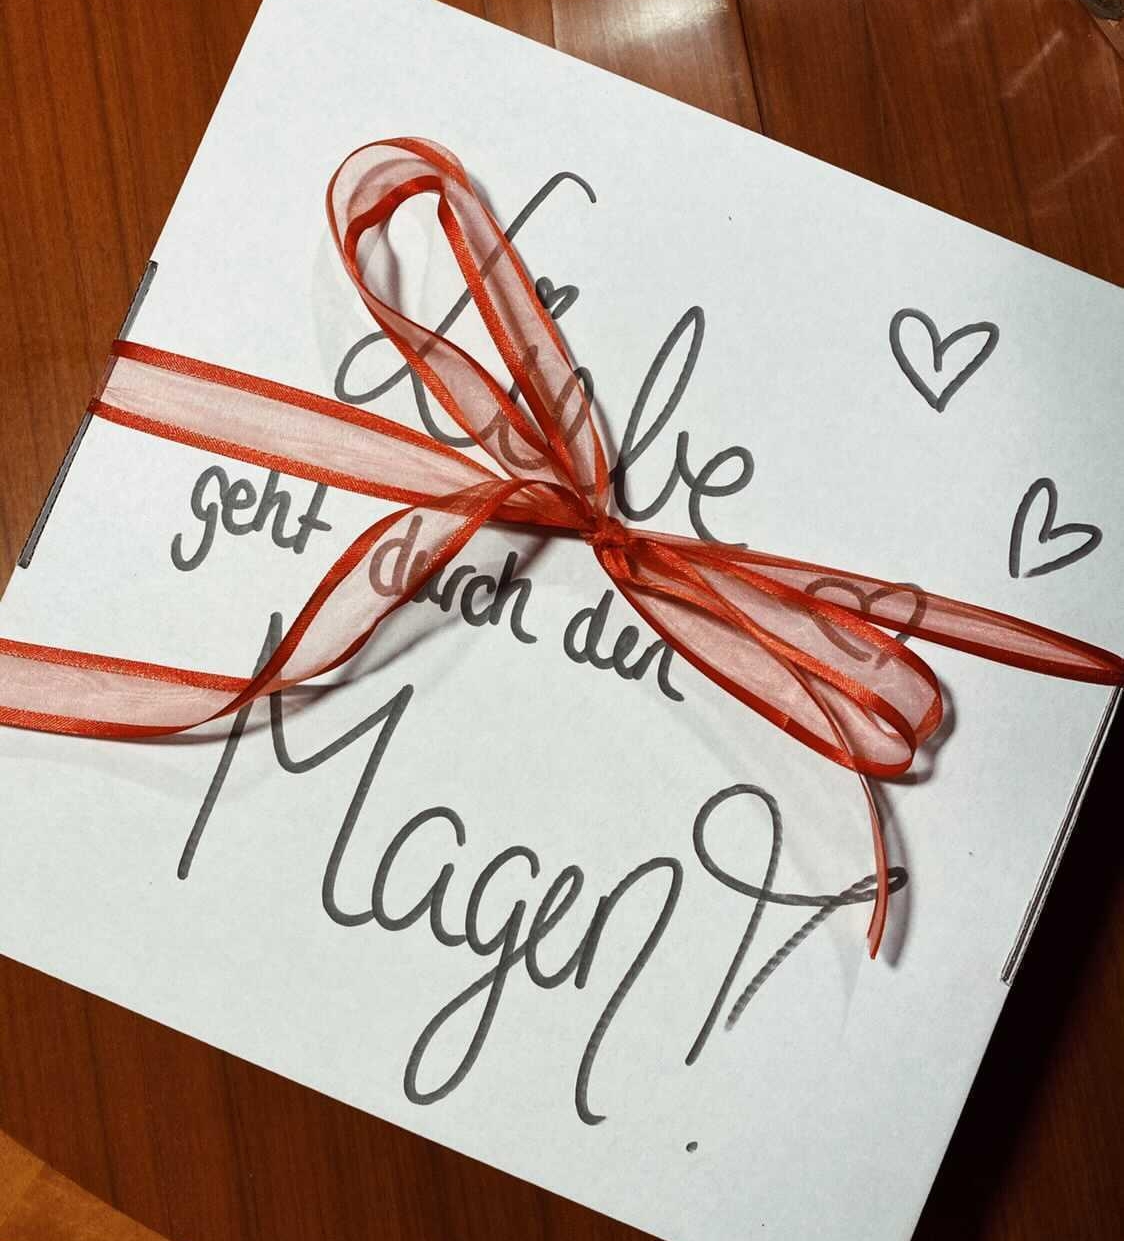 Liebe
geht durch den
Magen!